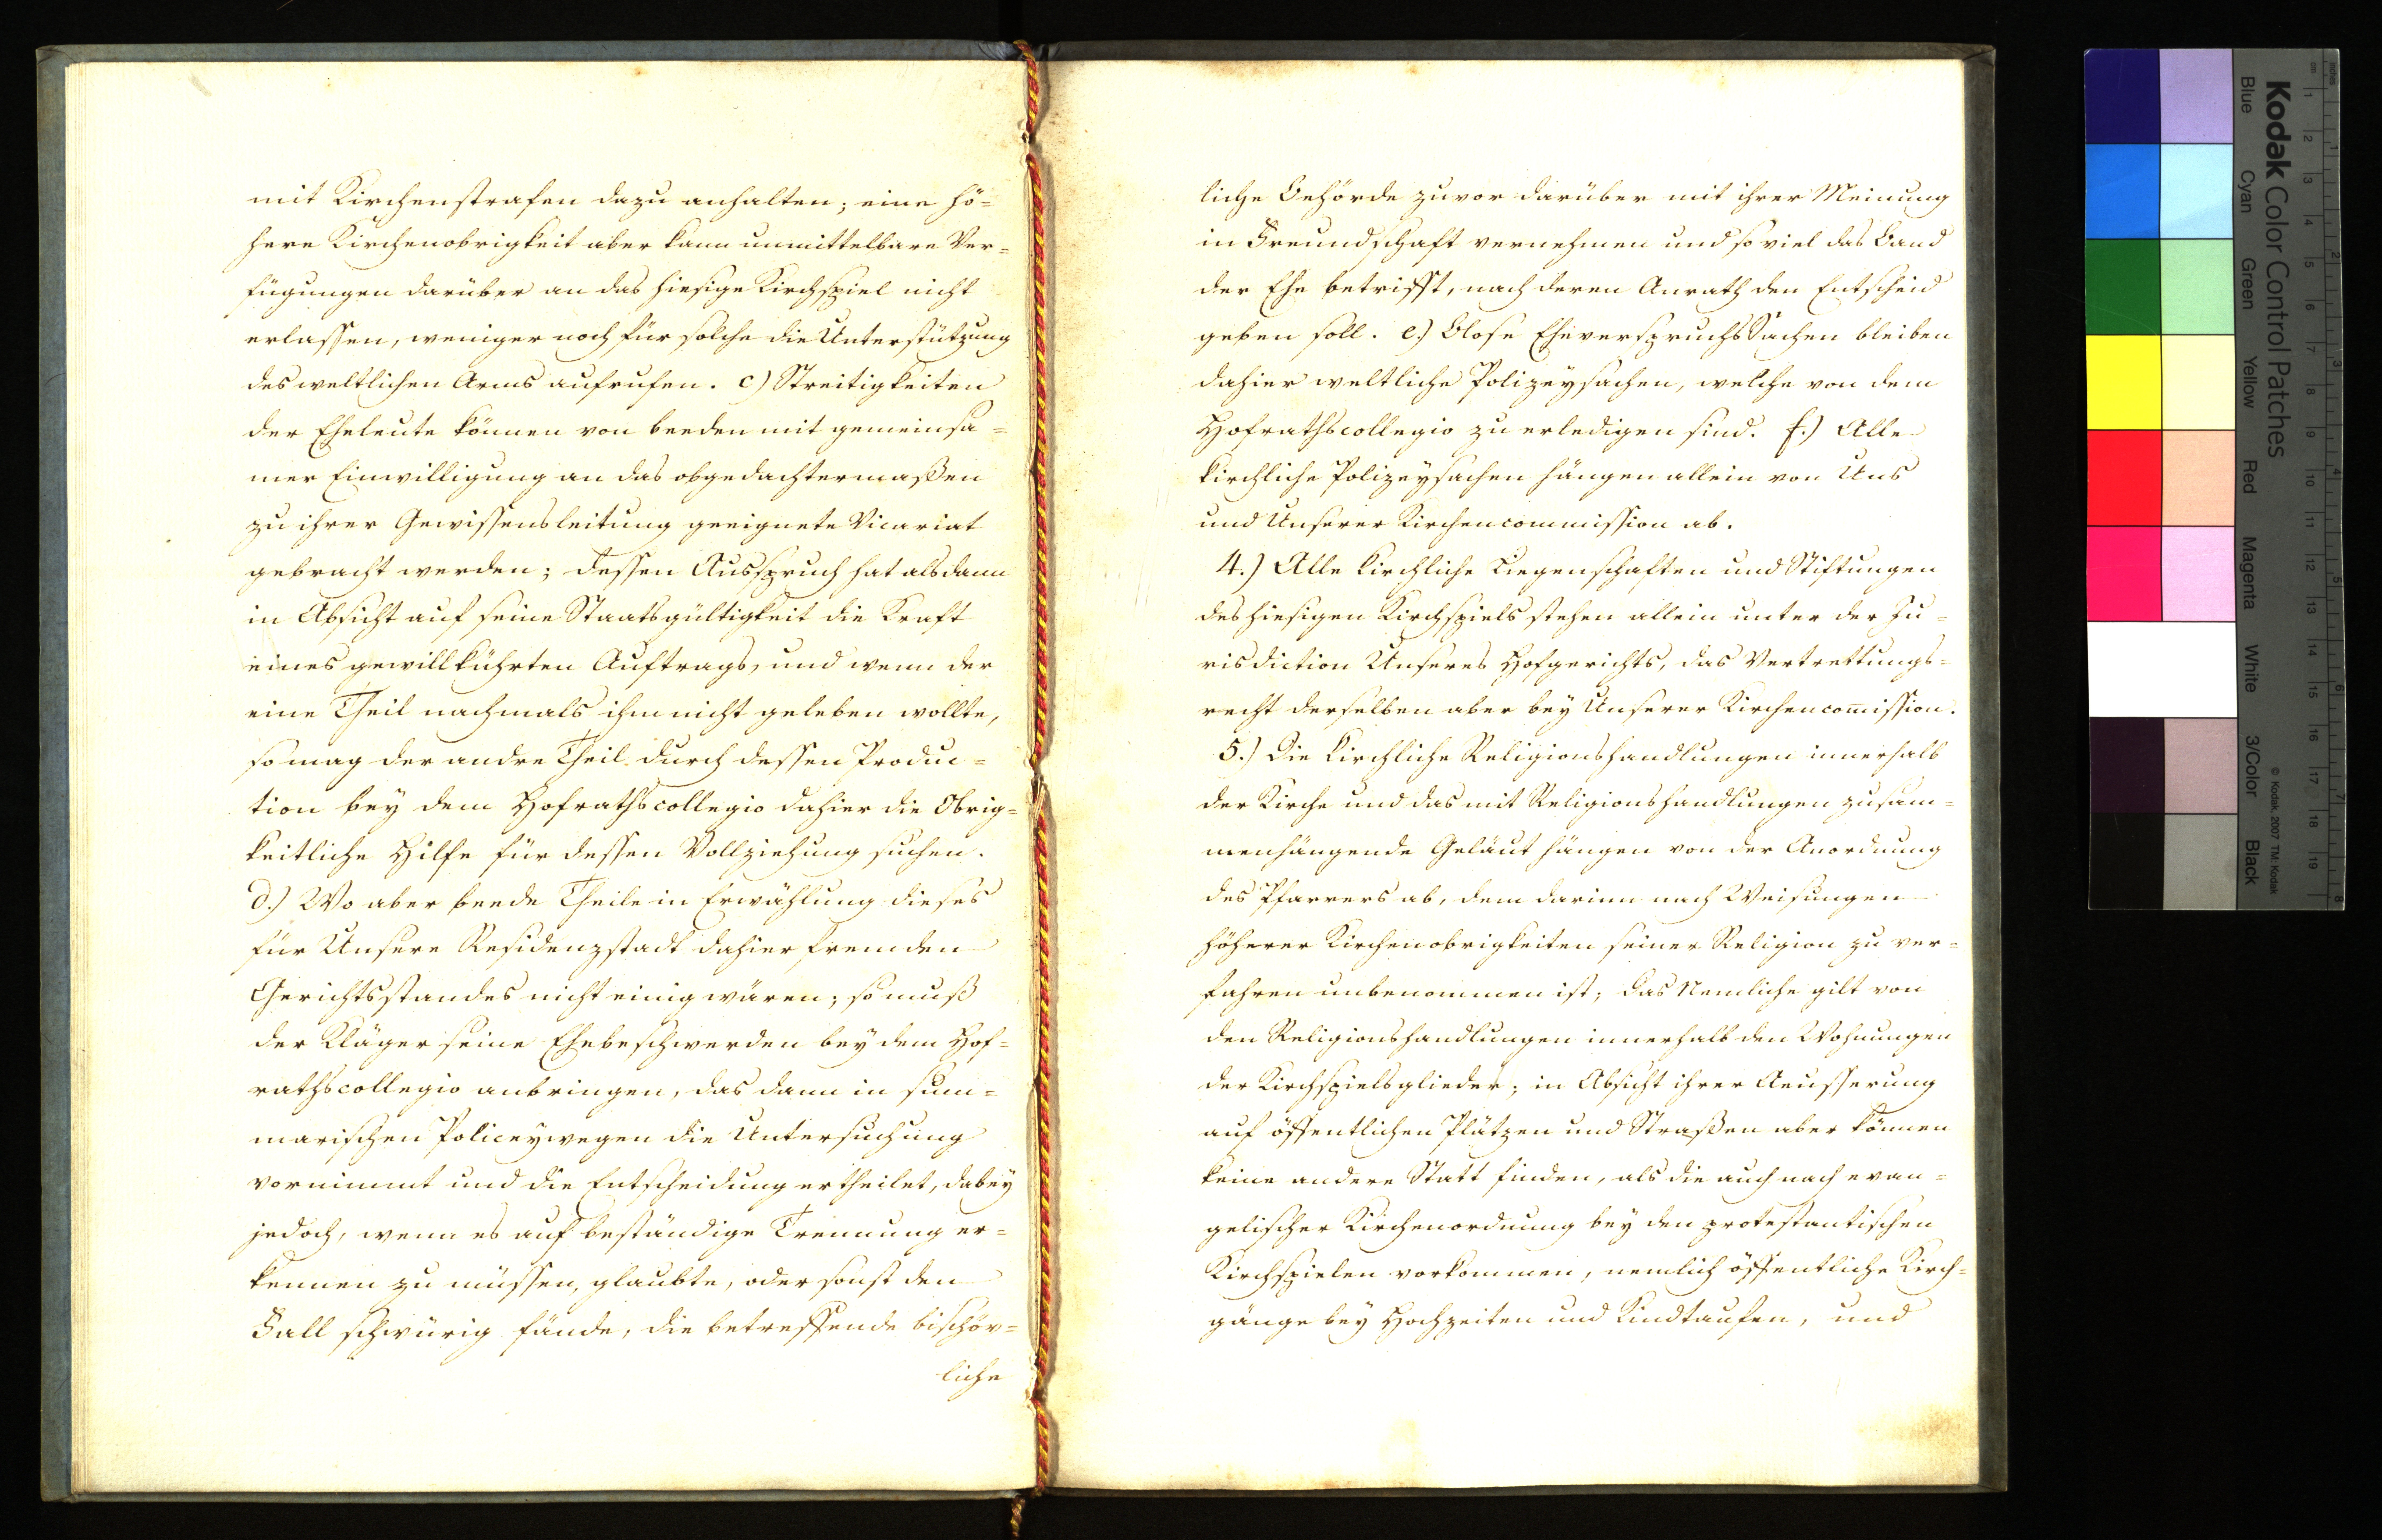 mit Kirchenstrafen dazu anhalten; eine hö=
here Kirchenobrigkeit aber kann unmittelbare Ver=
fügungen darüber an das hiesige Kirchspiel nicht
erlassen, weniger noch für solche die Unterstützung
des weltlichen Arms aufrufen. c) Streitigkeiten
der Eheleute können von beeden mit gemeinsa=
mer Einwilligung an das obgedachtermaßen
zu ihrer Gewissensleitung geeignete Vicariat
gebracht werden; dessen Ausspruch hat alsdann
in Absicht auf seine Staatsgültigkeit die Kraft
eines gewillkührten Auftrags, und wenn der
eine Theil nachmals ihm nicht geleben wollte,
so mag der andre Theil durch dessen Produc=
tion bey dem Hofrathscollegio dahier die Obrig=
keitliche Hilfe für dessen Vollziehung suchen.
d.) Wo aber beede Theile in Erwählung dieses
für Unsere Residenzstadt dahier fremden
Gerichtsstandes nicht einig wären; so muß
der Kläger seine Ehebeschwerden bey dem Hof=
rathscollegio anbringen, das dann in sum=
marischen Policeywegen die Untersuchung
vornimmt und die Entscheidung ertheilet, dabey
jedoch, wenn es auf beständige Trennung er=
kennen zu müssen, glaubte, oder sonst den
Fall schwürig fände, die betreffende bischöv=
liche
liche Behörde zuvor darüber mit ihrer Meinung
in Freundschaft vernehmen und so viel das Band
der Ehe betrifft, nach deren Anrath den Entscheid
geben soll. e.) Blose EheverspruchsSachen bleiben
dahier weltliche Polizeysachen, welche von dem
Hofrathscollegio zu erledigen sind. f.) Alle
kirchliche Polizeysachen hängen allein von Uns
und Unserer Kirchencommission ab.
4.) Alle kirchliche Liegenschaften und Stiftungen
des hiesigen Kirchspiels stehen allein unter der Ju=
risdiction Unseres Hofgerichts, das Vertrettungs=
recht derselben aber bey Unserer Kirchencomission.
5.) Die kirchliche Religionshandlungen innerhalb
der Kirche und das mit Religionshandlungen zusam=
menhängende Geläut hängen von der Anordnung
des Pfarrers ab, dem darinn nach Weisungen
höherer Kirchenobrigkeiten seiner Religion zu ver=
fahren unbenommen ist; das Nemliche gilt von
den Religionshandlungen innerhalb den Wohnungen
der Kirchspielsglieder; in Absicht ihrer Aeusserung
auf öffentlichen Plätzen und Straßen aber können
keine andere Statt finden, als die auch nach evan=
gelischer Kirchenordnung bey den protestantischen
Kirchspielen vorkommen, nemlich öffentliche Kirch=
gänge bey Hochzeiten und Kindtaufen, und
Kodak Color Control Patches
Blue Cyan Green Yellow Red Magenta White 3/Color Black
© Kodak, 2007 TM: Kodak
cm 1 2 3 4 5 6 7 8 9 10 11 12 13 14 15 16 17 18 19
inches 1 2 3 4 5 6 7 8